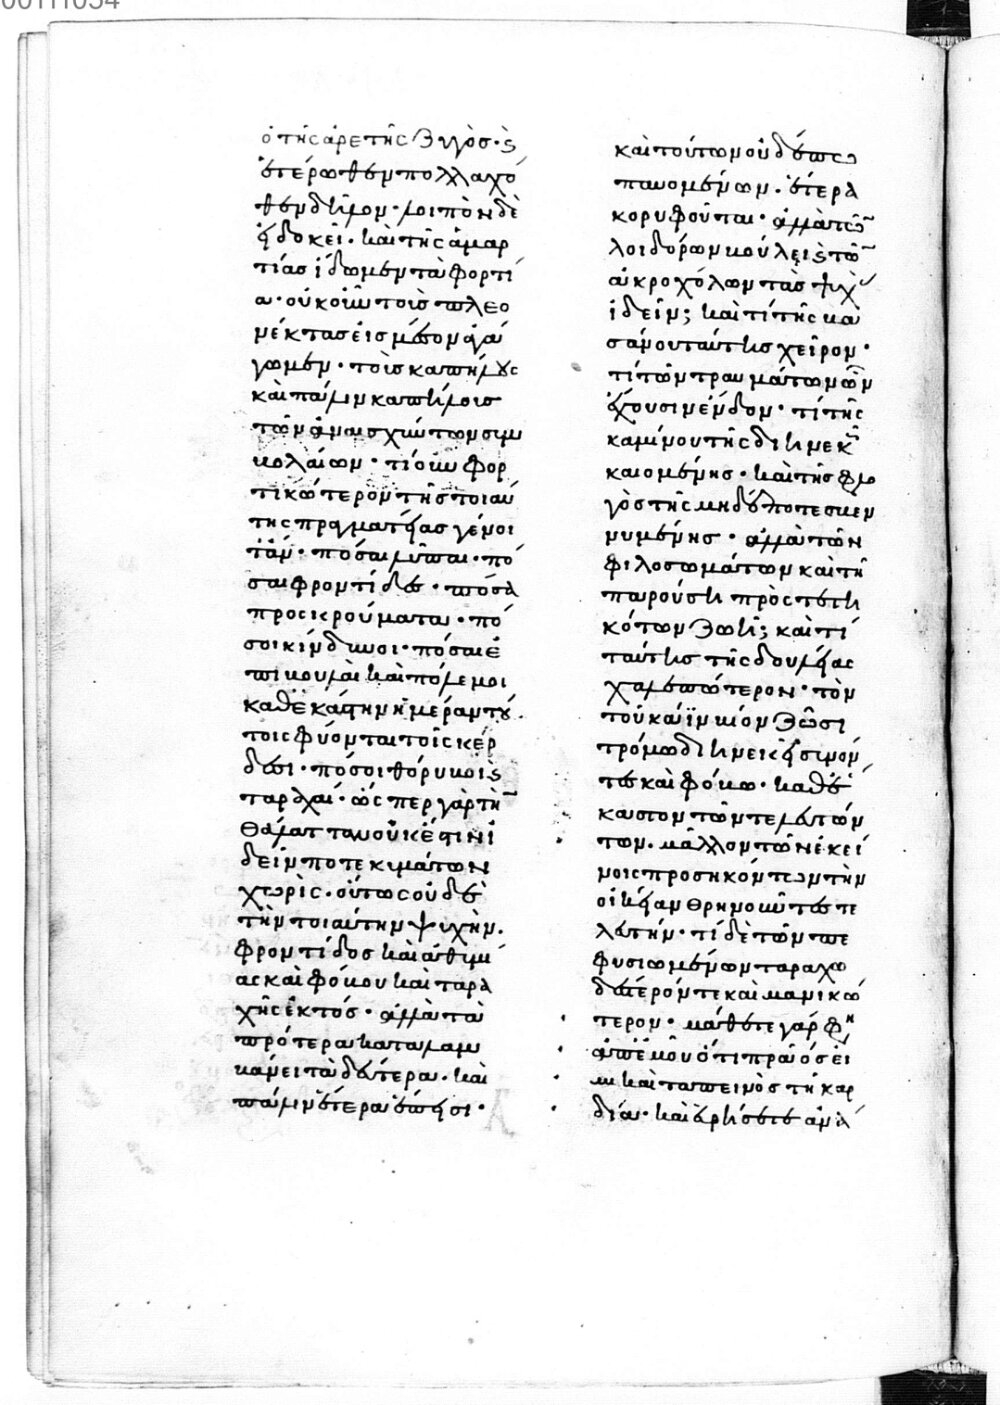 ὁ τῆς ἀρετῆς ζυγὸς· καὶ
ἑτέρωθεν πολλαχό
θεν δῆλον· λοιπὸν δὲ
εἰ δοκεῖ· καὶ τῆς ἁμαρ
τίας ἴδωμεν τὰ φορτί
α· οὐκοῦν τοὺς πλεο
νέκτας εἰς μέσον ἀγά
γωμεν· τοὺς καπήλους
καὶ παλιγκαπήλους
τῶν ἀναισχύντων συμ
βολαίων· τί οὖν φορ
τικώτερον τῆς τοιαύ
της πραγματείας γένοι
τ᾽ ἄν· πόσαι λῦπαι· πό
σαι φροντίδες· πόσα
προσκρούματα· πό
σοι κίνδυνοι· πόσαι ἐ
πιβουλαὶ καὶ πόλεμοι
καθ᾽ ἑκάστην ἡμέραν τού
τοις φύονται τοῖς κέρ
δεσι· πόσοι θόρυβοι καὶ
ταραχαί· ὥσπερ γὰρ τὴν
θάλατταν οὐκ ἔστιν ἰ
δεῖν ποτε κυμάτων
χωρὶς· οὕτως οὐδὲ
τὴν τοιαύτην ψυχὴν.
φροντίδος καὶ ἀθυμί
ας καὶ φόβου καὶ ταρα
χῆς ἐκτός· ἀλλὰ τὰ
πρότερα καταλαμ
βάνει τὰ δεύτερα· καὶ
πάλιν ἕτερα ἔπεισι·
καὶ τούτων οὐδέπω
παυομένων· ἕτερα
κορυφοῦται· ἀλλὰ τῶν
λοιδόρων βούλει καὶ τῶν
ἀκροχόλων τὰς ψυχὰς
ἰδεῖν; καὶ τί τῆς βα
σάνου ταύτης χεῖρον·
τί τῶν τραυμάτων ὧν
ἔχουσιν ἔνδον· τί τῆς
καμίνου τῆς διηνεκῶς
καιομένης· καὶ τῆς φλο
γὸς τῆς μηδέποτε σβεν
νυμένης· ἀλλὰ τῶν
φιλοσωμάτων καὶ τῇ
παρούσῃ προστετη
κότων ζωῇ; καὶ τί
ταύτης τῆς δουλείας
χαλεπώτερον· τὸν
τοῦ κάϊν βίον ζῶσι
τρόμῳ διηνεκεῖ συνόν
τες καὶ φόβῳ· καθ᾽ ἕ
καστον τῶν τελευτών
των. μᾶλλον τῶν ἐκεί
νοις προσηκόντων τὴν
οἰκείαν θρηνοῦντες τε
λευτήν· τί δὲ τῶν πε
φυσιωμένων ταραχω
δέστερόν τε καὶ μανικώ
τερον· μάθετε γάρ φησιν
ἀπ᾽ ἐμοῦ ὅτι πρᾶός εἰ
μι καὶ ταπεινὸς τῇ καρ
δίᾳ· καὶ εὑρήσετε ἀνά